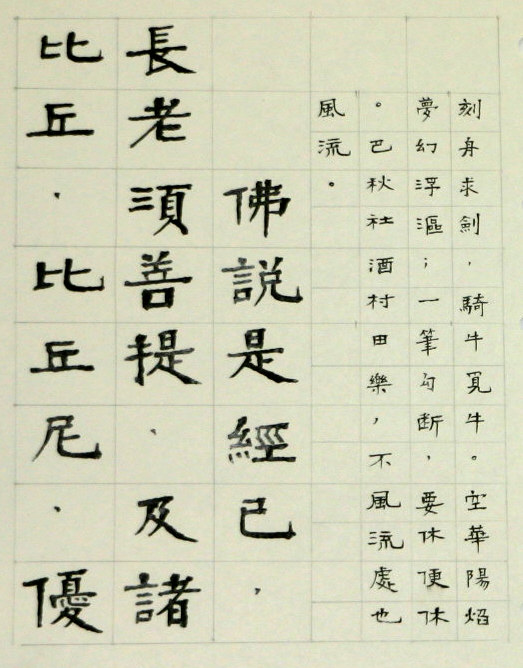 刻舟求劍，騎牛覓牛。空華陽焰
夢幻浮漚；一筆勾断，要休便休
。巴秋社酒村田樂，不風流處也
風流。
佛説是經已，
長老湏善提、及諸
比丘、比丘尼、優